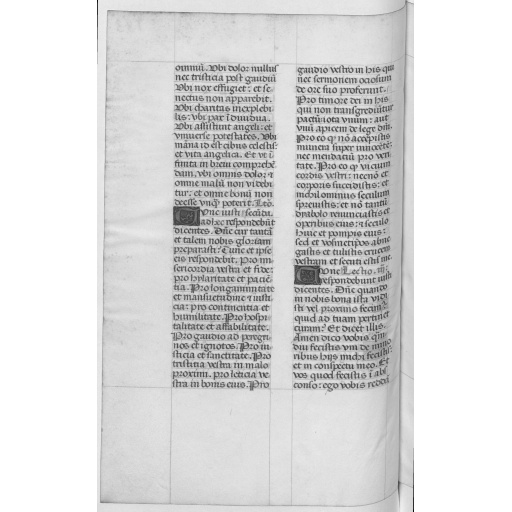 omniū. Vbi dolor nullus
nec tristicia post gaudiū
Vbi nox effugiet: et se-
nectus non apparebit.
Vbi charitas inexplebi-
lis: vbi pax īdiuidua.
Vbi assistunt angeli: et
vniuerse potestates. Vbi
māna id est cibus celestis:
et vita angelica. Et vt ī
finita in breui comprehē
dam. vbi omnis dolor: ⁊
omne malū non videbi
tur: et omne bonū non
deesse vnq̄ poterit.
Tunc iusti securi
adhec respondebūt
dicentes. Dn̄e cur tantā
et talem nobis gloriam
preparasti? Tunc et ipse
eis respondebit. Pro mi-
sericordia vestra et fide:
pro hylaritate et paciē-
tia. Pro longanimitate
et mansuetudine ⁊ iusti-
cia: pro continentia et
humilitate. Pro hospi-
talitate et affabilitate.
Pro gaudio ad peregri-
nos et ignotos. Pro iu-
sticia et sanctitate. Pro
tristitia vestra in malo
proximi. pro leticia ve-
stra in bonis eius. Pro
gaudio vestro in his qui
nec sermonem ociosum
de ore suo proferunt.
Pro timore dei in his
qui non transgrediūtur
pactū: iota vnum: aut
vnū apicem de lege dn̄i.
Pro eo q̄ nō accepistis
munera super innocētē:
nec mendaciū pro veri-
tate. Pro eo q̄ vicium
cordis vestri: necnō et
corporis succidistis: et
nichilominus seculum
spreuistis: et nō tantū
dyabolo renunciastis et
operibus eius: ⁊ seculo
huic et pompis eius:
sed et vosmetipos abne-
gastis et tulistis crucem
vestram et secuti estis me.
Tunc Lectio. iij.
respondebunt iusti
dicentes. Dn̄e quando
in nobis bona ista vidi
sti vel proximo fecim⁹:
quid ad tuam pertinet
curam? Et dicet illis.
Amen dico vobis q̄m
diu fecistis vni de mino
ribus hijs michi fecistis:
et in conspectu meo. Et
vos quod fecistis ī abs
conso: ego vobis reddā